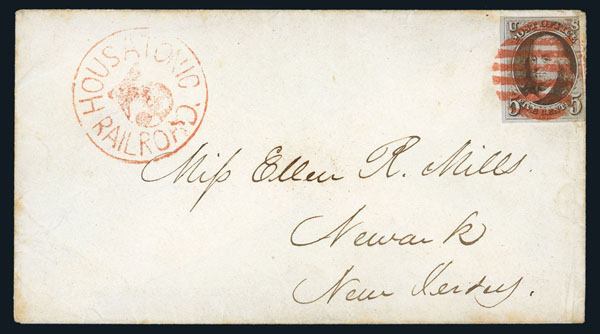 HOUSATONIC
RAILROAD
U S
POST OFFICE
5 5
Miſs Ellen R. Mills.
Newark
New Jersey.